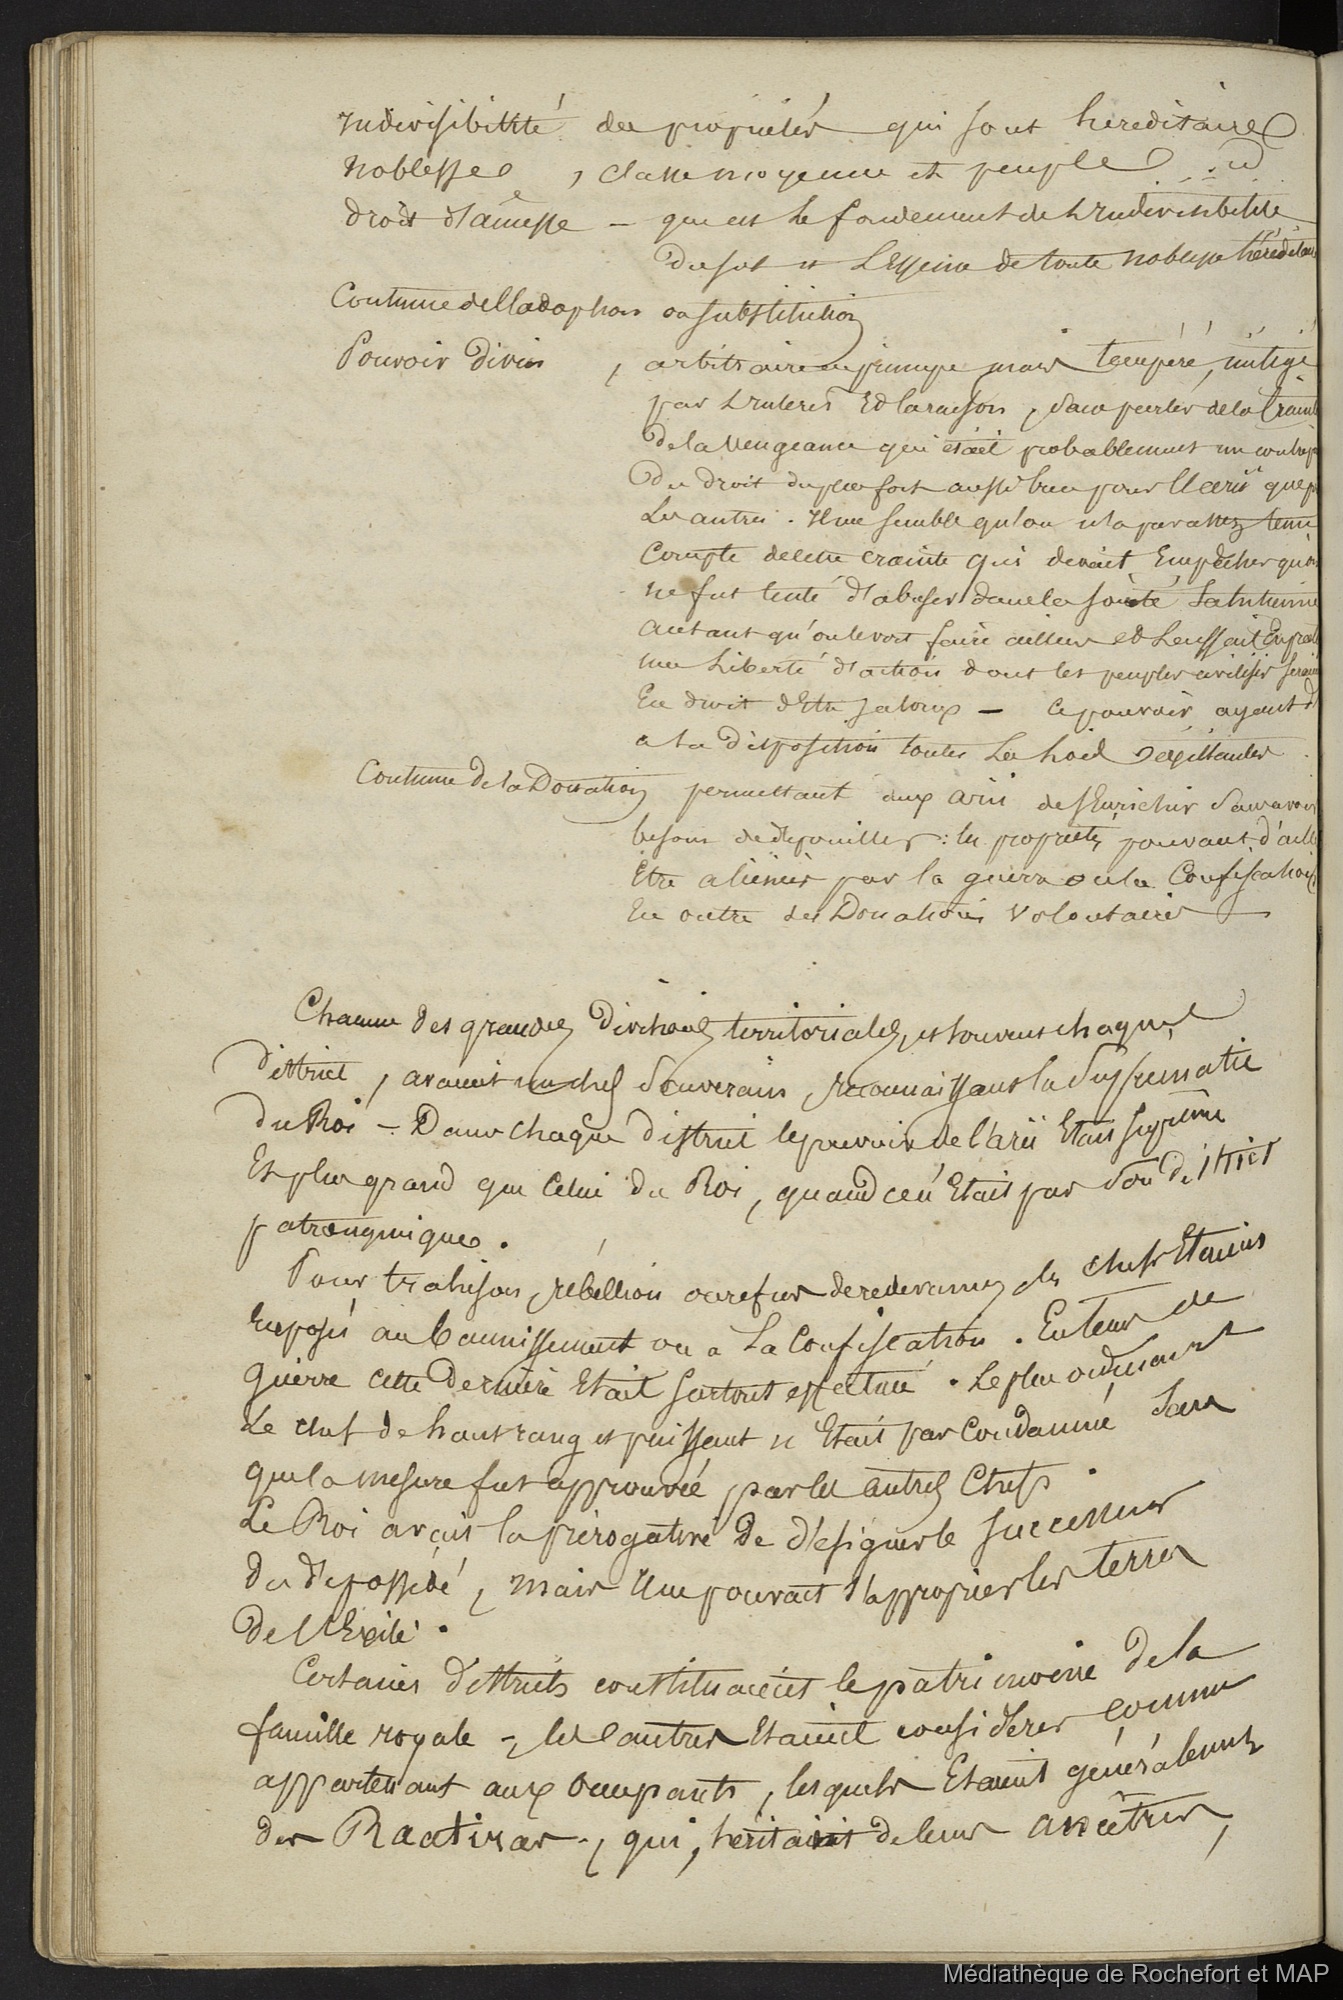 Indivisibilité des propriétés qui sont héréditaires
Noblesse, classe moyenne et peuple id
droit d'ainesse – qui est le fondement de l'Indivisibilité
du sol et l'Essence de toute noblesse héréditaire
Coutume de l'adoption ou substitution
Pouvoir divin, arbitraire en principe mais tempéré, mitigé
par l'Interêt Et la raison, sans parler de la Crainte
de la vengeance qui était probablement un
du droit du plus fort aussi bien pour l'arii que
Les autres. Il me semble qu'on n'a pas assez tenu
Compte de cette crainte qui devait Empêcher qu'on
ne fut tenté d'abuser dans la société Tahitienne
autant qu'on le voit faire ailleurs et laissait
une Liberté d'action dont les peuples civilisés seraient
En droit d'Etre jaloux – Ce pouvoir ayant
a sa disposition toutes Les lois Existantes
Coutume de la Donation permettant aux arii de s'Enrichir sans avoir
besoin de dépouiller : les propriétés pouvant d'ailleurs
Etre aliénées par la guerre ou la Confiscation
En outre des Donations volontaires
Chacune des grandes divisions territoriales, et souvent chaque
district, avaient un chef Souverain, reconnaissant la Suprématie
du Roi – Dans chaque district le pouvoir de l'arii Etait suprême
Et plus grand que Celui du Roi, quand ce n'Etait pas son district
patronymique.
Pour trahison, rébellion ou refus de redevances, les chefs Etaient
Exposés au bannissement ou a La Confiscation. En tems de
guerre cette dernière Etait surtout effectuée. Le plus ordinairement
Le chef de haut rang et puissant n'Etait pas Condamné sans
que la mesure fut approuvée par les autres Chefs.
Le Roi avait la prérogative de désigner le successeur
du dépossédé, mais il ne pouvait s'approprier les terres
de l'Exilé.
Certaines districts constituaient le patrimoine de la
famille royale –, les autres Etaient considérés comme
appartenant aux occupants, lesquels Etaient généralement
des Raatiras –, qui, héritaient de leurs ancêtres,
Médiathèque de Rochefort et MAP